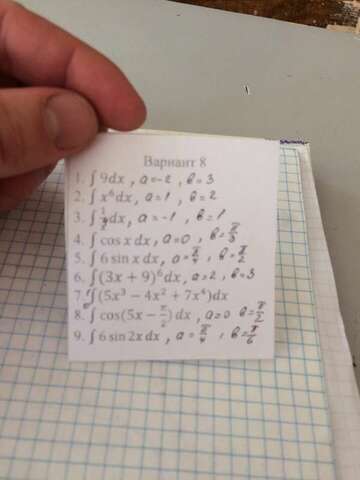 Вариант 8
1. ∫ 9dx , a=-2 , b=3
2. ∫ x⁶dx , a=1 , b=2
3. ∫ ½dx , a=-1 , b=1
4. ∫ cos x dx , a=0 , b=π/3
5. ∫ 6 sin x dx , a= , b=π/2
6. ∫(3x + 9)⁶dx , a=2 , b=3
7. ∫(5x³ − 4x² + 7x⁴)dx
8. ∫ cos(5x − π/2) dx , a=0 b=π/2
9. ∫ 6 sin 2x dx , a=π/4 , b=π/6